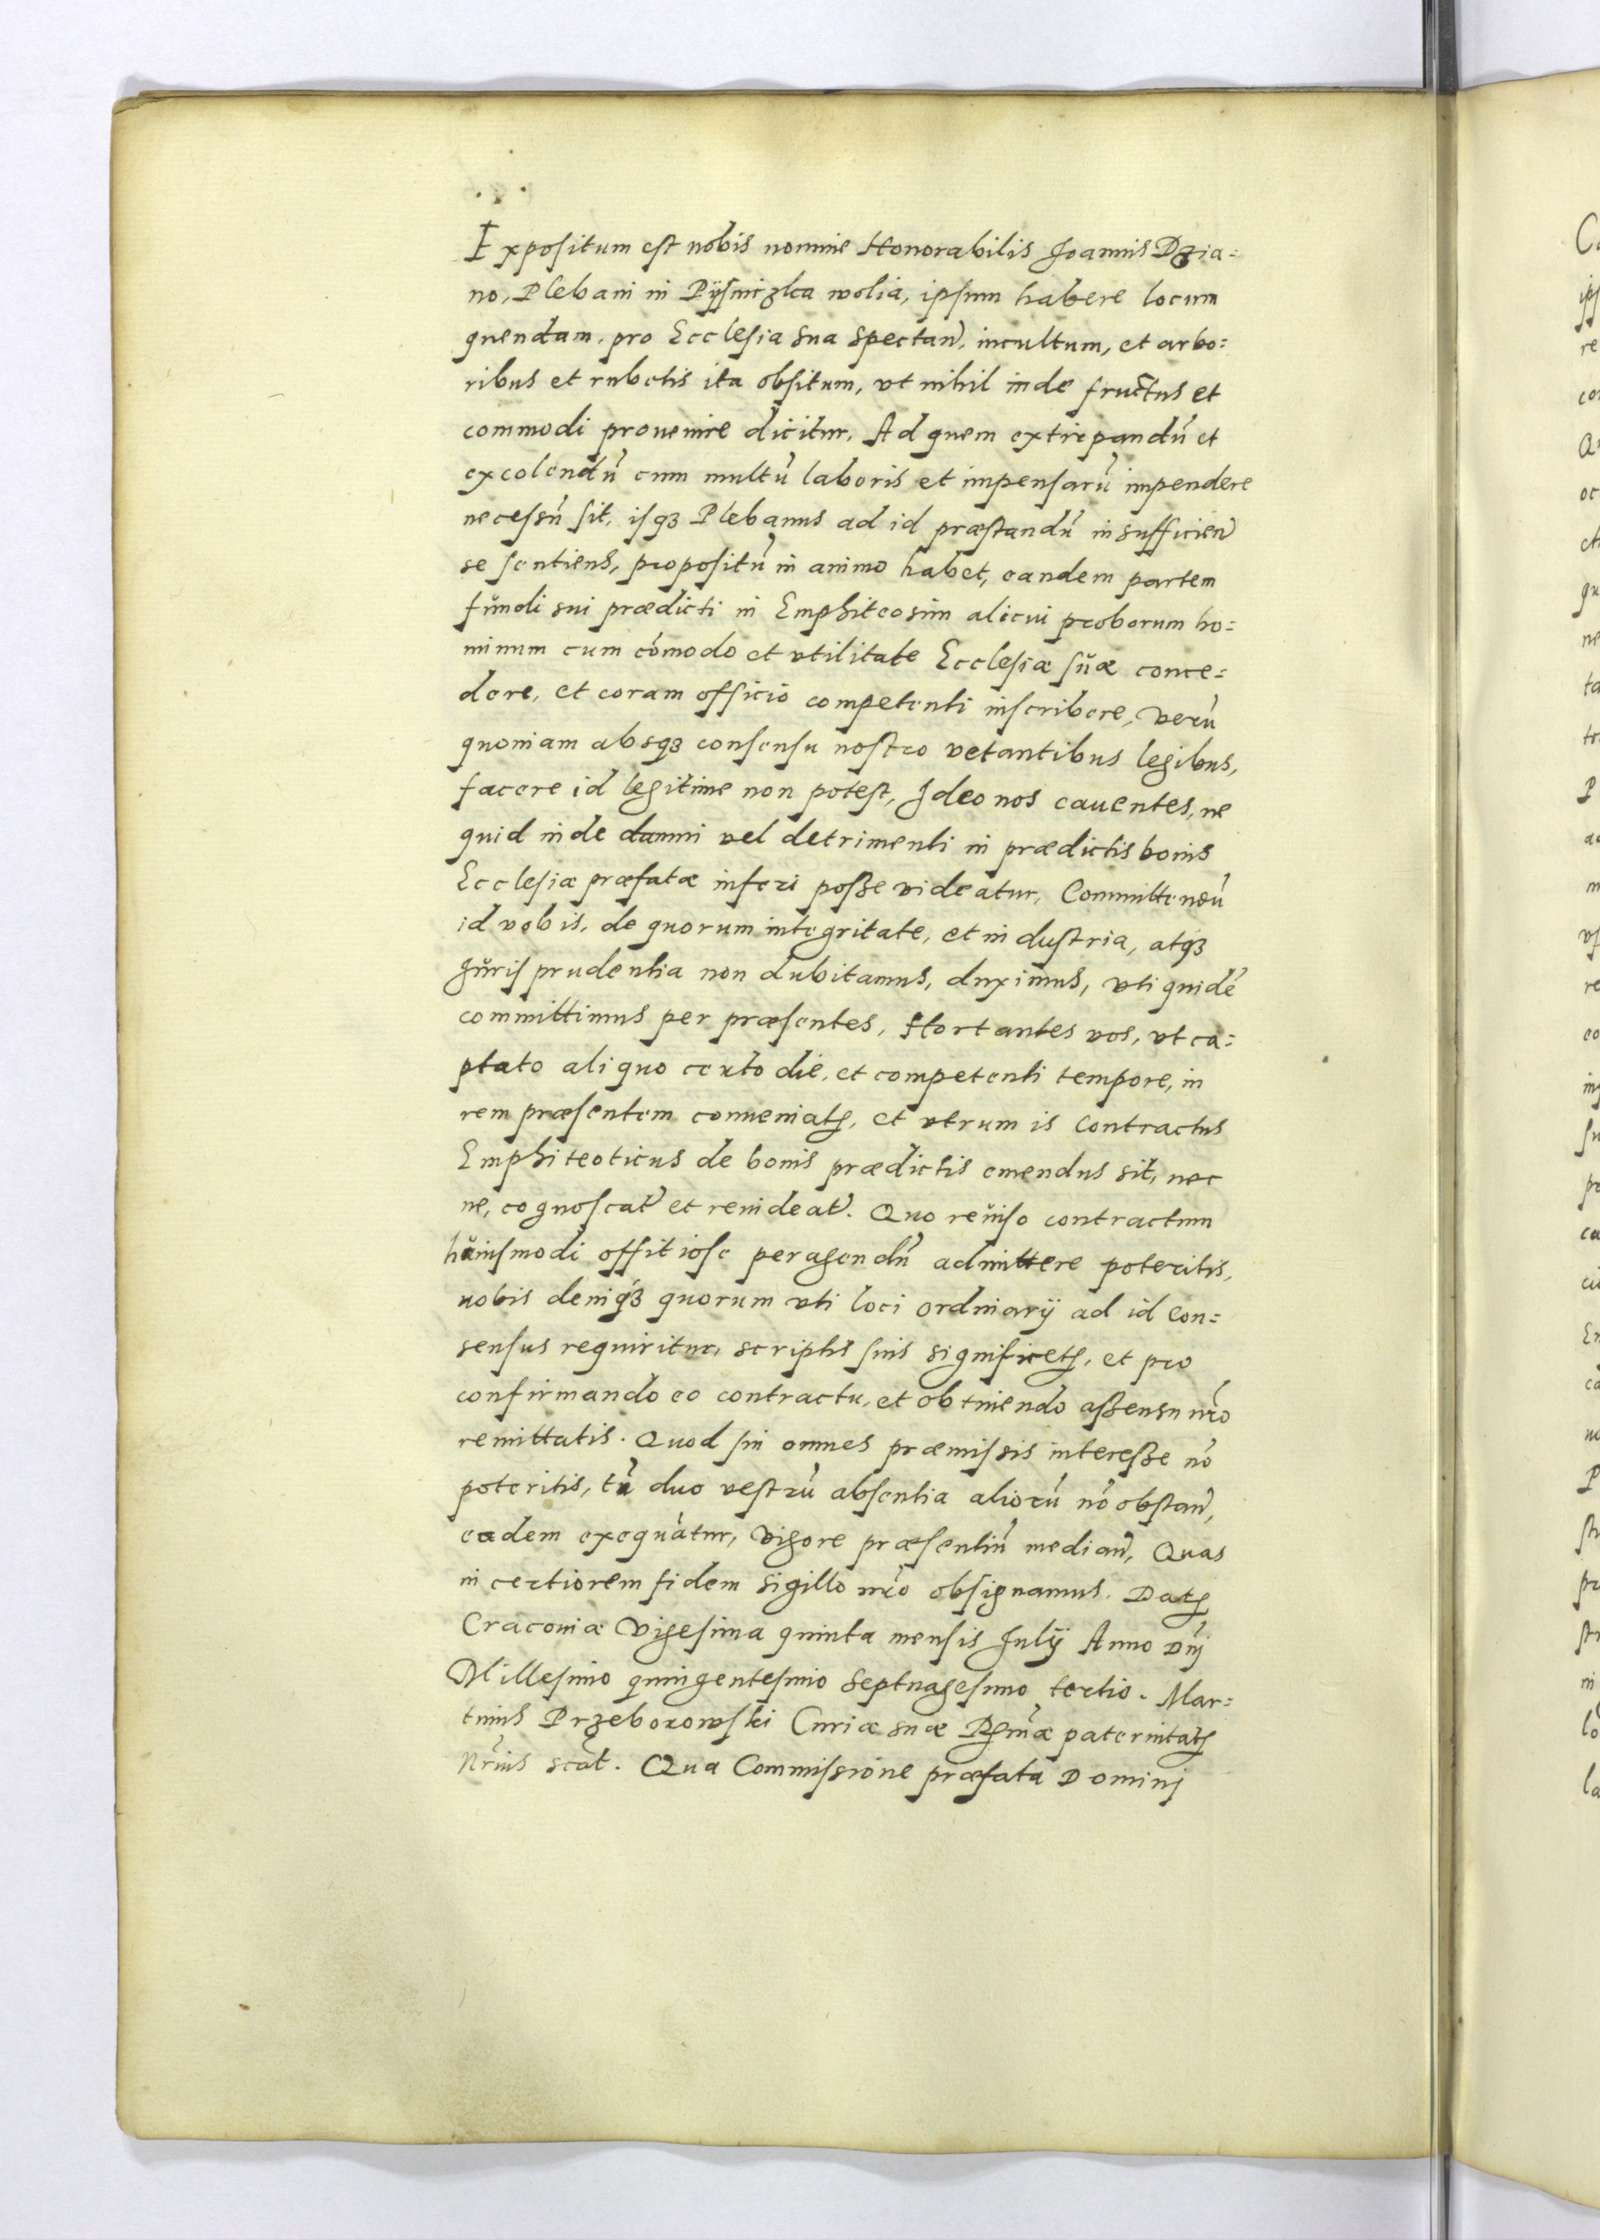 Expositum est nobis nomine Honorabilis Joannis Dzia=
no, Plebani in Pÿsniczka wolia, ipsum habere locum
quendam, pro Ecclesia sua spectañ, incultum, et arbo=
ribus et rubetis ita obsitum, vt nihil inde fructus et
commodi prouenire dicitur, Ad quem extirpandū et
excolendū cum multū laboris et impensarū impendere
necessū sit, isq₃ Plebanus ad id præstandū insufficieñ
se sentiens, propositū in animo habet, eandem partem
fundi sui prædicti in Emphiteosim alicui proborum ho=
minum cum cōmodo et vtilitate Ecclesiæ suæ conce=
dere, et coram officio competenti inscribere, verū
quoniam absq₃ consensu nostro vetantibus legibus,
facere id legitime non potest, Ideo nos cauentes, ne
quid inde damni vel detrimenti in prædictis bonis
Ecclesiæ præfatæ inferi posse videatur, Committendū
id vobis, de quorum integritate, et industria, atq₃
Jurisprudentia non dubitamus, duximus, vti quidē
committimus per præsentes, Hortantes vos, vt ca=
ptato aliquo certo die, et competenti tempore, in
rem præsentem conueniatꝭ, et vtrum is contractus
Emphiteoticus de bonis prædictis emendus sit, nec
ne, cognoscat̃ et reuideat̃. Quo reuiso contractum
huiusmodi offitiose peragendū admittere poteritis,
nobis deniq₃ quorum vti loci ordinarÿ ad id con=
sensus requiritur, scriptis suis significetꝭ, et pro
confirmando eo contractu, et obtinendo assensu nr̃o
remittatis. Quod sin omnes præmissis interesse nō
poteritis, tū duo vestrū absentia aliorū nō obstañ,
eadem exequātur, vigore præsentiū mediañ, Quas
in certiorem fidem sigillo nr̃o obsignamus. Datꝭ
Cracouiæ Vigesima quinta mensis Julÿ Anno Dñj
Millesimo quingentesimo septuagesimo tertio. Mar=
tinus Przeborowski Curiæ suæ Rꝭmæ paternitatꝭ
Nr̃ius scāt. Qua Commissione præfata Dominj